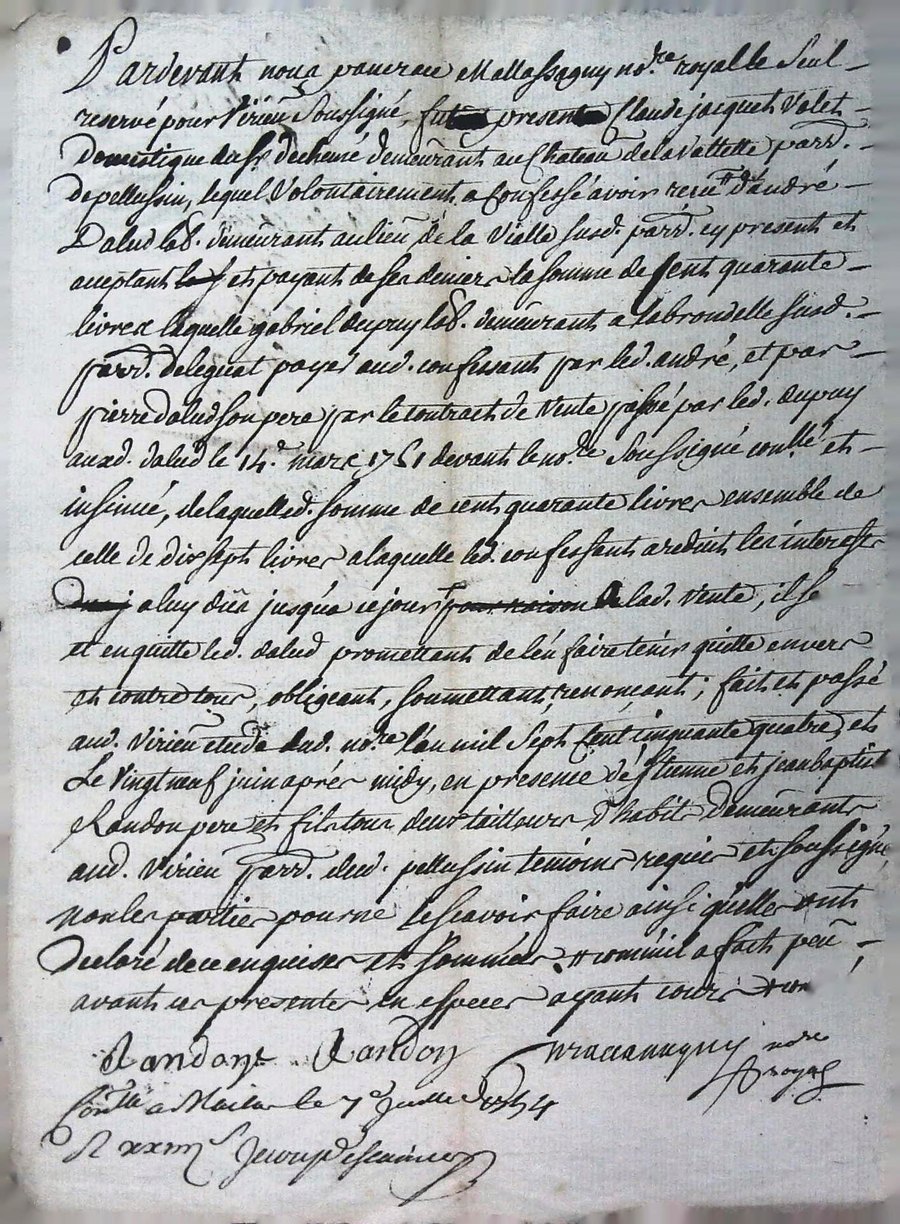 Pardevant nous pancrace Mallassagny no.re royalle Seul
reservé pour Virieu Soussigné, fut present Claude jacquet Valet
Domestique du Sr. dechené demeurant au Chateau de la Vallette parr.
de pellussin, lequel Volontairement a Confessé avoir receu d'andré
Dalud lab. demeurant au lieu de la Vialle susd. parr. cy present et
acceptant et payant de ses deniers la somme de Cent quarante
livres laquelle gabriel dupuy lab. demeurant a labrondelle susd.
parr. deleguat payer aud. confessant par led. andré, et par
pierre dalud son pere par le contract de Vente passé par led. dupuy
auxd. dalud le 14e. mars 1751 devant le no.re Soussigné con.llé et
insinué, de laquelled. somme de cent quarante livres ensemble de
celle de dix sept livres a laquelle led. confessant a reduit les interests
a luy dus jusqua ce jour pour raison de lad. Vente, il se
et en quitte led. dalud promettant de l'en faire tenir quitte envers
et contre tous, obligeant, soumettant, renonçant; fait et passé
aud. Virieu etude dud. no.re l'an mil Sept Cent cinquante quatre, et
Le Vingt neuf juin après midy, en presence d'Etienne et jean baptiste
Randon pere et fils tous deux tailleurs d'habits demeurants
aud. Virieu parr. dud. pellussin temoins requis et soussignés
non les parties pour ne le scavoir faire ainsi quelles ont
declaré de ce enquises et sommées # comm'il a fait peu
avant ces presentes en especes ayant cours
Randon Randon no.re
royal
Con.llé a Maclas le 7e Juillet 1754
R xxiiij s